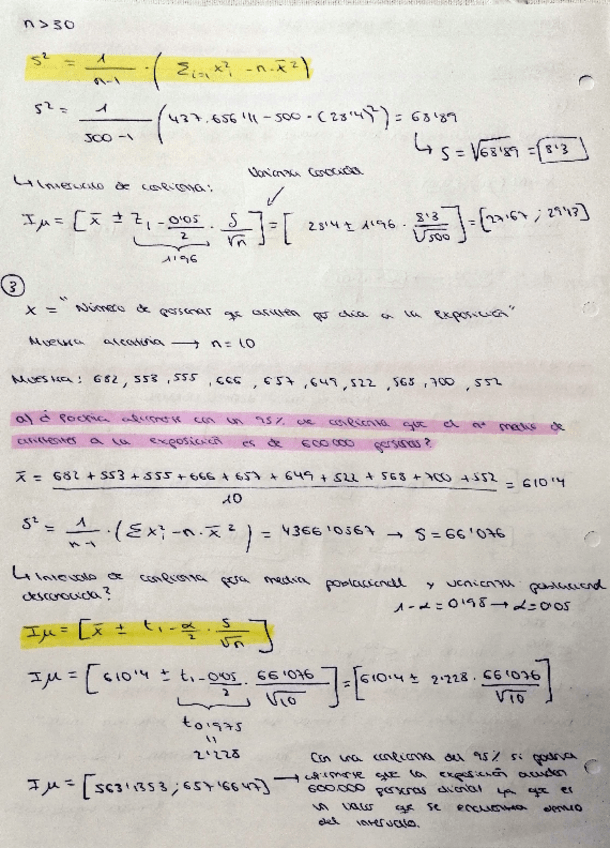 n > 30
S² = 1/(n-1) · ( Σi=1 xi² - n · x̄² )
S² = 1/(500-1) ( 437.656'11 - 500 · (28'4)² ) = 68'89
↳ S = √68'89 = 8'3
↳ Intervalo de confianza: Varianza conocida
Iμ = [ x̄ ± z1-0'05/2 · S/√n ] = [ 28'4 ± 1'96 · 8'3/√500 ] = [27'67 ; 29'13]
1'96
③
X = "Número de personas que asisten por día a la exposición"
Muestra aleatoria → n = 10
Muestra: 682, 553, 555, 666, 657, 649, 522, 568, 700, 552
a) ¿ Podría afirmarse con un 95% de confianza que el nº medio de
asistentes a la exposición es de 600.000 personas?
x̄ = (682 + 553 + 555 + 666 + 657 + 649 + 522 + 568 + 700 + 552)/10 = 610'4
S² = 1/(n-1) · ( Σ xi² - n · x̄² ) = 4366'0567 → S = 66'076
↳ Intervalo de confianza para media poblacional y varianza poblacional
desconocida? 1-α = 0'95 → α = 0'05
Iμ = [ x̄ ± t1-α/2 · S/√n ]
Iμ = [ 610'4 ± t1-0'05/2 · 66'076/√10 ] = [ 610'4 ± 2'228 · 66'076/√10 ]
t0'975
=
2'228
Iμ = [563'1353 ; 657'6647] → Con una confianza del 95% si podría
afirmarse que la exposición acuden
600.000 personas diarial ya que es
un valor que se encuentra dentro
del intervalo.